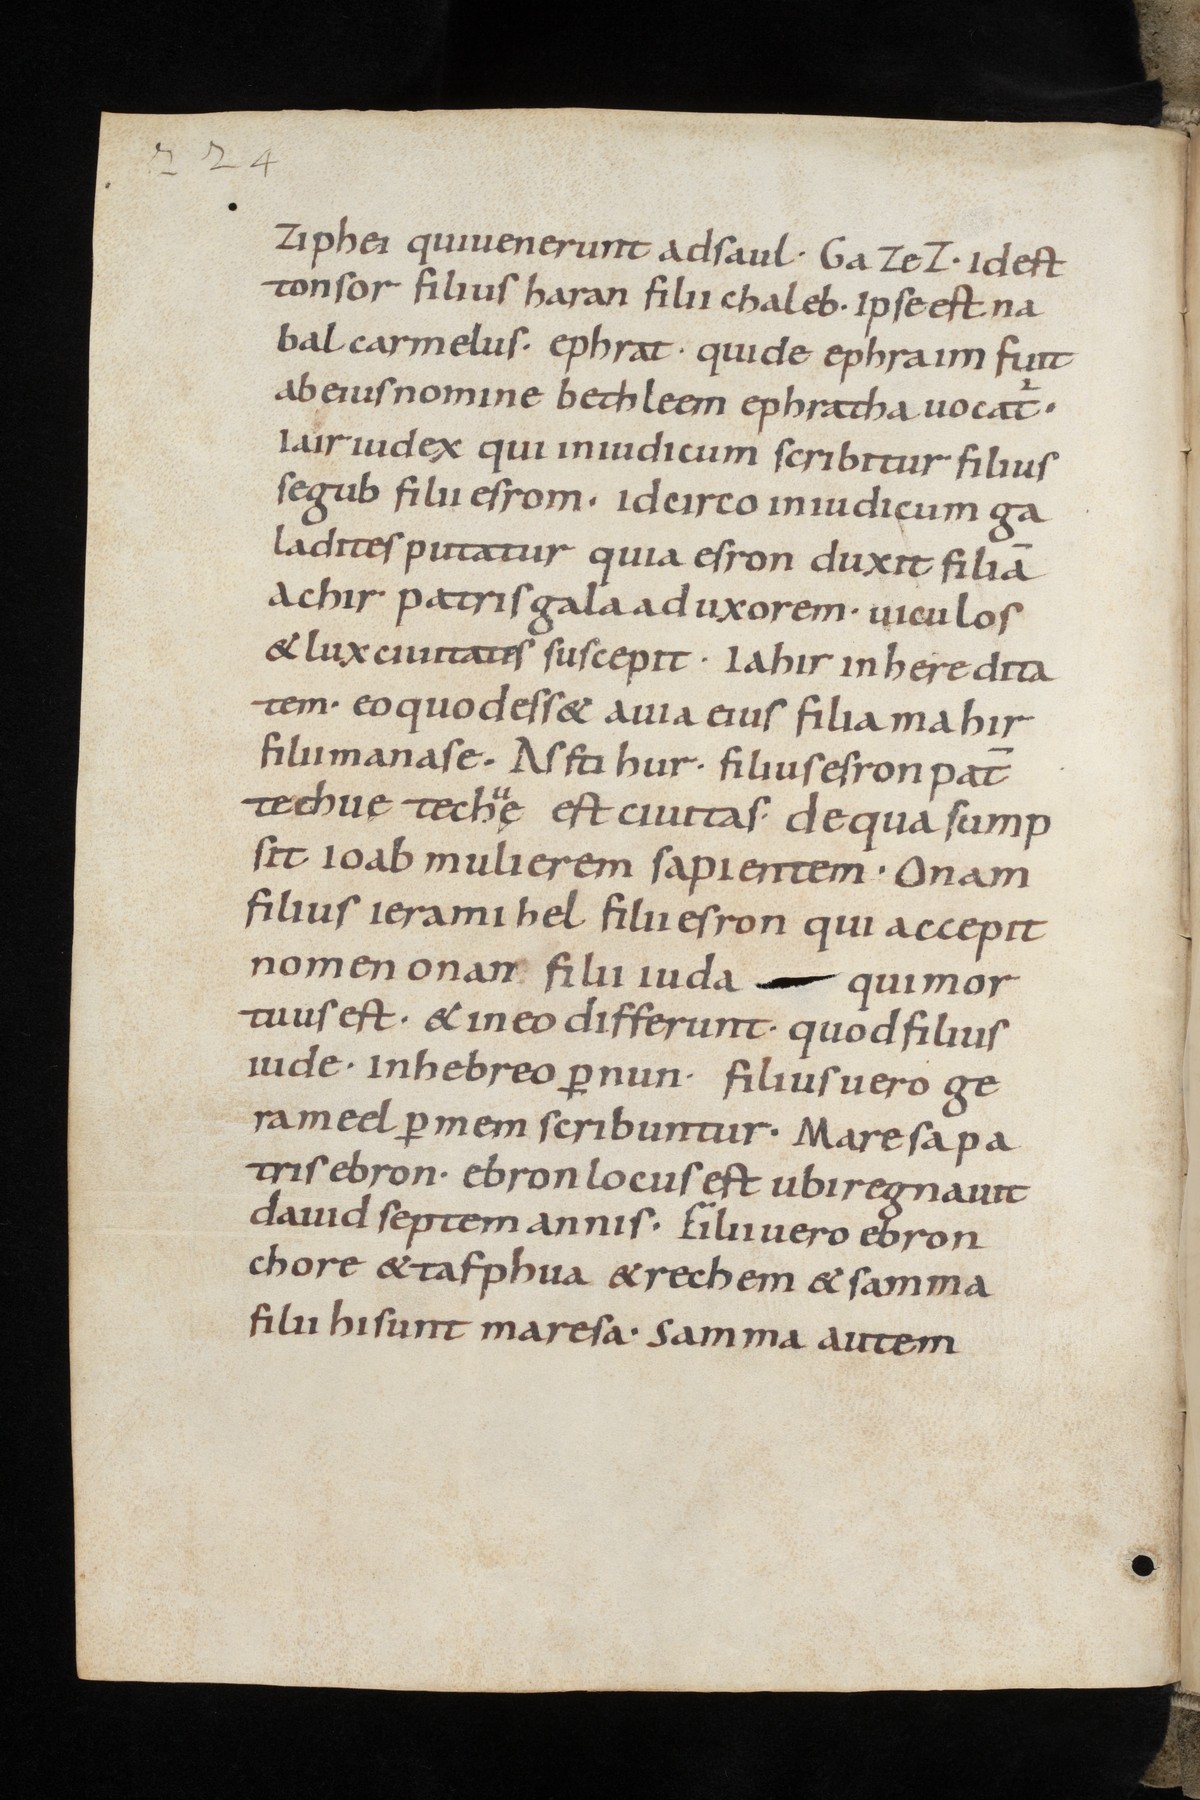 224
Ziphei quiuenerunt adsaul· GaZeZ· idest
tonsor filius haran filii chaleb· Ipseest na
bal carmelus· ephrat· quide ephraim fuit
abeiusnomine bethleem ephratha uocat̄·
Iair iudex qui iniudicum scribitur filius
segub filii esrom· idcirco iniudicum ga
ladites putatur quia esron duxit filiā
achir patris galaad uxorem· uiculos
&lux ciuitates suscepit· Iahir inheredita
tem· eoquodess& auia eius filia mahir
filiimanase· Assti hur· filiusesron pat̄
techuę techuę est ciuitas· dequa sump
sit ioab mulierem sapientem· Onam
filius ieramihel filii esron qui accepit
nomen onam filii iuda — quimor
tuus est· &ineo differunt· quodfilius
iude· inhebreo ꝑ nun· filius uero ge
rameel ꝑ mem scribuntur· Maresa pa
tris ebron· ebron locus est ubi regnauit
dauid septem annis· Filii uero ebron
chore &tafphua &rechem &samma
filii hisunt maresa· Samma autem